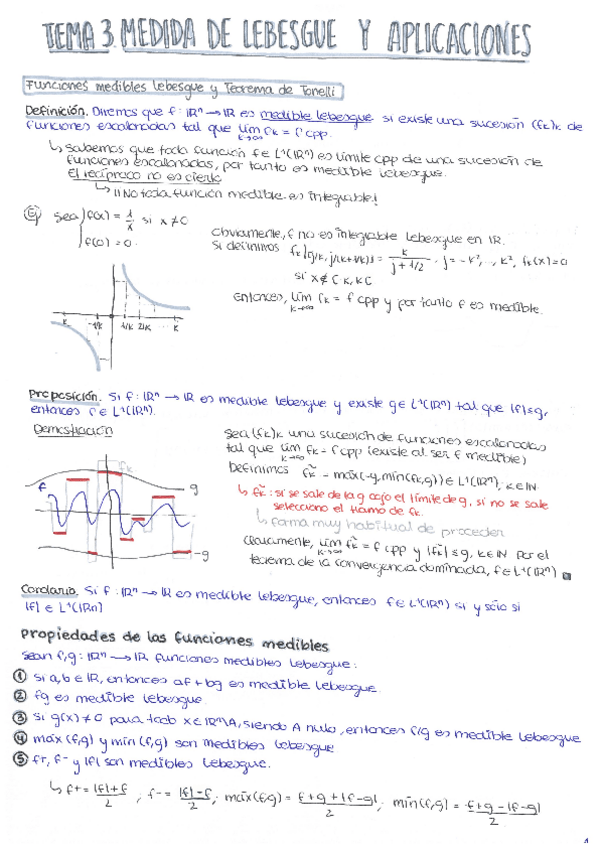 TEMA 3. MEDIDA DE LEBESGUE Y APLICACIONES
Funciones medibles Lebesgue y Teorema de Tonelli
Definición. Diremos que f: ℝⁿ → ℝ es medible Lebesgue si existe una sucesión (fk)k de
funciones escalonadas tal que lim k→∞ fk = f cpp.
↳ Sabemos que toda función f ∈ L¹(ℝⁿ) es límite cpp de una sucesión de
funciones escalonadas, por tanto es medible Lebesgue.
El recíproco no es cierto
↳ ¡¡No toda función medible es integrable!
Ej Sea f(x) = 1/x si x ≠ 0
f(0) = 0.
Obviamente, f no es integrable Lebesgue en ℝ.
Si definimos fk|[j/k, j/(k+1/k)) = k/(j + 1/2), j = -k²,..., k², fk(x) = 0
si x ∉ [-k, k[
Entonces, lim k→∞ fk = f cpp y por tanto f es medible.
-k -1/k 1/k 2/k k
Proposición. Si f: ℝⁿ → ℝ es medible Lebesgue y existe g ∈ L¹(ℝⁿ) tal que |f| ≤ g,
entonces f ∈ L¹(ℝⁿ).
Demostración
Sea (fk)k una sucesión de funciones escalonadas
tal que lim k→∞ fk = f cpp (existe al ser f medible)
Definimos f̃k = máx(-g, mín(fk, g)) ∈ L¹(ℝⁿ), k ∈ ℕ
↳ f̃k: si se sale de la g cojo el límite de g, si no se sale
selecciono el tramo de fk.
↳ forma muy habitual de proceder
Claramente, lim k→∞ f̃k = f cpp y |f̃k| ≤ g, k ∈ ℕ por el
teorema de la convergencia dominada, f ∈ L¹(ℝⁿ)
f fk g
-g
Corolario. Si f: ℝⁿ → ℝ es medible Lebesgue, entonces f ∈ L¹(ℝⁿ) si y sólo si
|f| ∈ L¹(ℝⁿ)
Propiedades de las funciones medibles
Sean f, g: ℝⁿ → ℝ funciones medibles Lebesgue:
① Si a, b ∈ ℝ, entonces af + bg es medible Lebesgue
② fg es medible Lebesgue.
③ Si g(x) ≠ 0 para todo x ∈ ℝⁿ\A, siendo A nulo, entonces f/g es medible Lebesgue
④ máx(f, g) y mín(f, g) son medibles Lebesgue
⑤ f+, f- y |f| son medibles Lebesgue.
↳ f+ = (|f| + f)/2; f- = (|f| - f)/2; máx(f, g) = (f + g + |f - g|)/2; mín(f, g) = (f + g - |f - g|)/2